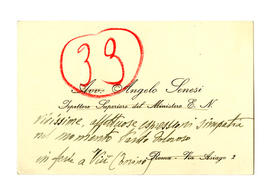 39
Avv. Angelo Senesi
Ispettore Superiore del Ministero E. N.
Vivissime, affettuose espressioni simpatia
nel momento tanto doloroso
in ferie a Viù (Torino)
Roma - Via Asiago 2